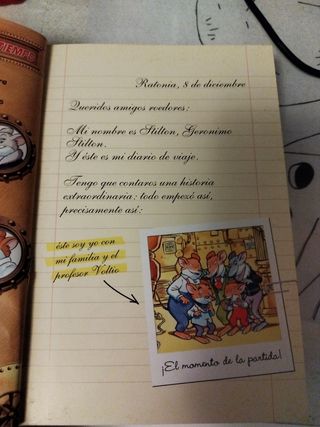 TIEMPO
Ratonia, 8 de diciembre
Queridos amigos roedores:
Mi nombre es Stilton, Geronimo
Stilton.
Y éste es mi diario de viaje.
Tengo que contaros una historia
extraordinaria: todo empezó así,
precisamente así:
éste soy yo con
mi familia y el
profesor Voltio
¡El momento de la partida!